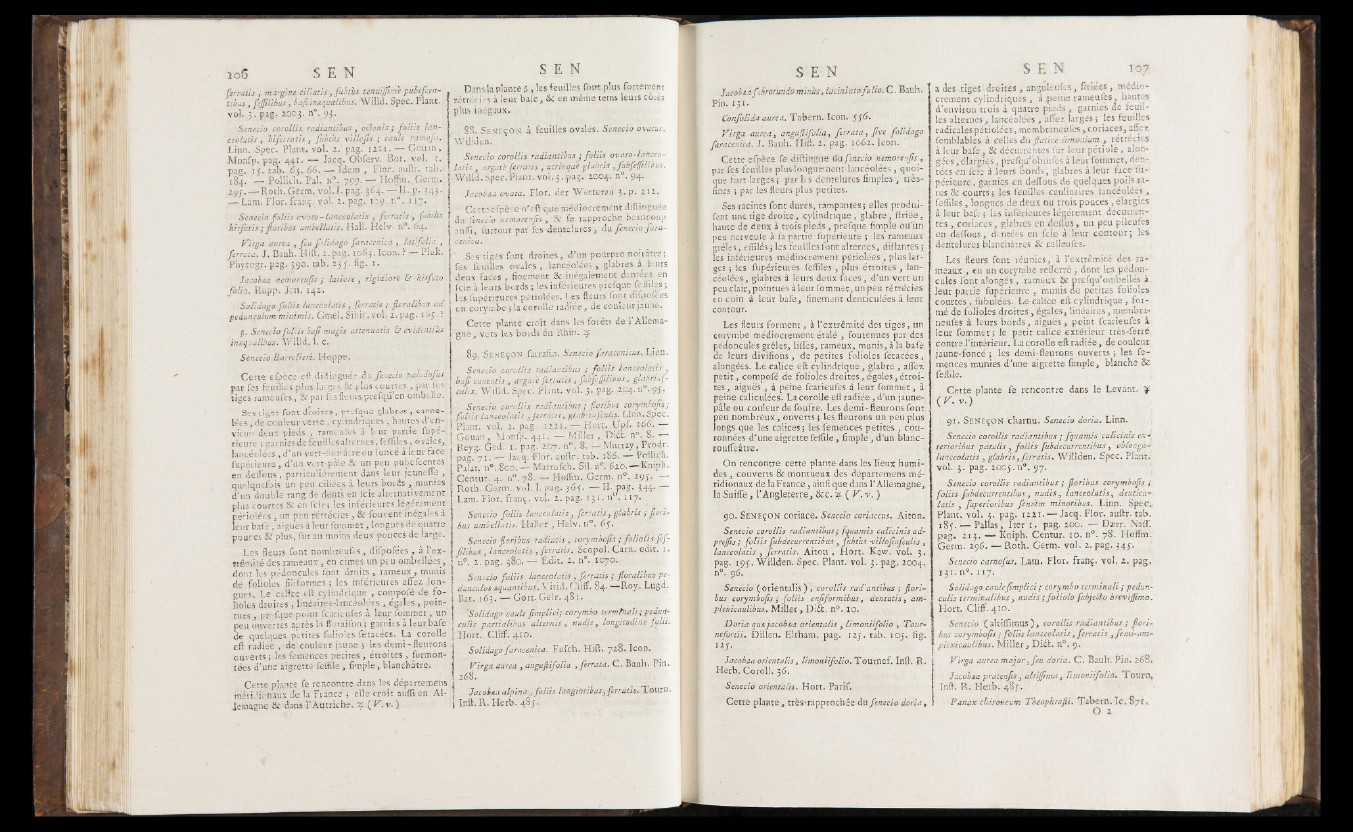 106 S E N
S E N
serratis, margine ciliatis, subtùs tenuissimè pubescen-
tibus, sessilibus, basi inaequalibus. Willd. Spec. Plant.
vol. 3. pag. 2003. n°. 93.
Senecio corollis radiantibus, octonis; foliis lan-
ceolatis, biserratis, subtùs villosis; caule ramoso.
Linn. Spec. Plant. vol. 2. pag. 1221. — Gouan,
Monsp. pag. 441. — Jacq. Observ. Bot. vol. 3.
pag. 15. tab. 65, 66. — Idem, Flor. austr. tab.
184. — Pollich. Pal. n°. 799. — Hoffm. Germ.
295. — Roth. Germ. vol. I. pag. 364. — II. p. 343.
— Lam. Flor. franç. vol. 2. pag. 129. n°. 117.
Senecio foliis ovato-lanceolatis, serratis, subtùs
hirsutis; floribus umbellatis. Hall. Helv. n°. 64.
Virga aurea, seu solidago saracenica, latifolia,
serrata. J. Bauh. Hist. 2. pag. 1063. Icon. ? — Pluk.
Phytogr. pag. 390. tab. 235. fig. 1.
Jacobaea nemorensis; latiore, rigidiore & hirsuto
folio. Rupp. Jen. 142.
Solidago foliis lanceolatis, serratis; floralibus ad
pedunculum minimis. Gmel. Sibir. vol. 2. pag. 165. ?
β. Senecio foliis basi magis attenuatis & evidentiùs
inaequalibus. Willd. l. c.
Senecio Barrelieri. Hoppe.
Cette espèce est distinguée du senecio paludosus
par ses feuilles plus larges & plus courtes, par ses
tiges rameuses, & par ses fleurs presqu'en ombelle.
Ses tiges sont droites, presque glabres, canne-
lées, de couleur verte, cylindriques, hautes d'en-
viron deux pieds, rameuses à leur partie supé-
rieure; garnies de feuilles alternes, sessiles, ovales,
lancéolées, d'un vert-noirâtre ou foncé à leur face
supérieure, d'un vert pâle & un peu pubescentes
en dessous, particuliérement dans leur jeunesse,
quelquefois un peu ciliées à leurs bords, munies
d'un double rang de dents en scie alternativement
plus courtes & en scie; les inférieures légérement
pétiolées, un peu rétrécies, & souvent inégales à
leur base, aiguës à leur sommet, longues de quatre
pouces & plus, sur au moins deux pouces de large.
Les fleurs sont nombreuses, disposées, à l'ex-
trémité des rameaux, en cimes un peu ombellées,
dont les pédoncules sont droits, rameux, munis
de folioles filiformes; les inférieures assez lon-
gues. Le calice est cylindrique, composé de fo-
lioles droites, linéaires-lancéolées, égales, poin-
tues, presque point scarieuses à leur sommet, un
peu ouvertes après la floraison; garnies à leur base
de quelques petites folioles sétacées. La corolle
est radiée, de couleur jaune; les demi-fleurons
ouverts; les semences petites, étroites, surmon-
tées d'une aigrette sessile, simple, blanchâtre.
Cette plante se rencontre dans les départemens
méridionaux de la France; elle croît aussi en Al-
lemagne & dans l'Autriche. ♃ (V. v.)
Dans la plante β, les feuilles sont plus fortement
rétrécies à leur base, & en même tems leurs côtés
plus inégaux.
88. SENEÇON à feuilles ovales. Senecio ovatus.
Willden.
Senecio corollis radiantibus; foliis ovato-lanceo-
latis, argutè serratis, utrinquè glabris, subsessilibus.
Willd. Spec. Plant. vol. 3. pag. 2004. n°. 94.
Jacobaea ovata. Flor. der Wetterau 3. p. 212.
Cette espèce n'est que médiocrement distinguée
du senecio nemorensis, & se rapproche beaucoup
aussi, surtout par ses dentelures, du senecio sara-
cenica.
Ses tiges sont droites, d'un pourpre noirâtre;
ses feuilles ovales, lancéolées, glabres à leurs
deux faces, finement & inégalement dentées en
scie à leurs bords; les inférieures presque sessiles;
les supérieures pétiolées. Les fleurs sont disposées
en corymbe; la corolle radiée, de couleur jaune.
Cette plante croît dans les forêts de l'Allema-
gne, vers les bords du Rhin. ♃
89. SENEÇON sarrasin. Senecio saracenicus. Linn.
Senecio corollis radiantibus; foliis lanceolatis,
basi cuneatis, argutè serratis, subsessilibus, glabrius-
culis. Willd. Spec. Plant. vol. 3. pag. 204. n°. 95.
Senecio corollis radiantibus; floribus corymbosis;
foliis lanceolatis, serratis, glabriusculis. Linn. Spec.
Plant. vol. 2. pag. 1221. — Hort. Ups. 266. —
Gouan, Monsp. 441. — Miller, Dict. n°. 8. —
Reyg. Ged. 1. pag. 207. n°. 8. — Murray, Prodr.
pag. 71. — Jacq. Flor. austr. tab. 186. — Pollich.
Palat. n°. 800. — Mattusch. Sil. n°. 620. — Kniph.
Centur. 4. n°. 78. — Hoffm. Germ. n°. 295. —
Roth. Germ. vol. I. pag. 365. — II. pag. 344. —
Lam. Flor. franç. vol. 2. pag. 131. n°. 117.
Senecio foliis lanceolatis, serratis, glabris; flori-
bus umbellatis. Haller, Helv. n°. 65.
Senecio floribus radiatis, corymbosis; foliolis ses-
silibus, lanceolatis, serratis. Scopol. Carn. edit. 1.
n°. 2. pag. 380. — Edit. 2. n°. 1070.
Senecio foliis lanceolatis, serratis; floralibus pe-
dunculos aequantibus. Virid. Cliff. 84. — Roy. Lugd.
Bat. 163. — Gort. Gelr. 481.
Solidago caule simplici; corymbo terminali; pedun-
culis partialibus alternis, nudis, longitudine folii.
Hort. Cliff. 410.
Solidago saracenica. Fusch. Hist. 728. Icon.
Virga aurea, angustifolia, serrata. C. Bauh. Pin.
268.
Jacobaea alpina, foliis longioribus, serratis. Tourn.
Inst. R. Herb. 485.
S E N
S E N 107
Jacobaea subrotundo minùs, laciniato folio. C. Bauh.
Pin. 131.
Consolida aurea. Tabern. Icon. 556.
Virga aurea, angustifolia, serrata, sive solidago
saracenica. J. Bauh. Hist. 2. pag. 1062. Icon.
Cette espèce se distingue du senecio nemorensis,
par ses feuilles plus longuement lancéolées, quoi-
que fort larges; par les dentelures simples, très-
fines; par les fleurs plus petites.
Ses racines sont dures, rampantes; elles produi-
sent une tige droite, cylindrique, glabre, striée,
haute de deux à trois pieds, presque simple ou un
peu nerveuse à sa partie supérieure; les rameaux
grêles, effilés; les feuilles sont alternes, distantes;
les inférieures médiocrement pétiolées, plus lar-
ges; les supérieures sessiles, plus étroites, lan-
céolées, glabres à leurs deux faces, d'un vert un
peu clair, pointues à leur sommet, un peu rétrécies
en coin à leur base, finement denticulées à leur
contour.
Les fleurs forment, à l'extrémité des tiges, un
corymbe médiocrement étalé, soutenues par des
pédoncules grêles, lisses, rameux, munis, à la base
de leurs divisions, de petites folioles sétacées,
alongées. Le calice est cylindrique, glabre, assez
petit, composé de folioles droites, égales, étroi-
tes, aiguës, à peine scarieuses à leur sommet, à
peine caliculées. La corolle est radiée, d'un jaune-
pâle ou couleur de soufre. Les demi-fleurons sont
peu nombreux, ouverts; les fleurons un peu plus
longs que les calices; les semences petites, cou-
ronnées d'une aigrette sessile, simple, d'un blanc-
roussâtre.
On rencontre cette plante dans les lieux humi-
des, couverts & montueux des départemens mé-
ridionaux de la France, ainsi que dans l'Allemagne,
la Suisse, l'Angleterre, &c. ♃ (V. v.)
90. SENEÇON coriace. Senecio coriaceus. Aiton.
Senecio corollis radiantibus; squamis calicinis ad-
pressis; foliis subdecurrentibus, subtùs villosiusculis,
lanceolatis, serratis. Aiton, Hort. Kew. vol. 3.
pag. 195. Willden. Spec. Plant. vol. 3. pag. 2004.
n°. 96.
Senecio (orientalis), corollis radiantibus; flori-
bus corymbosis; foliis ensiformibus, dentatis, am-
plexicaulibus. Miller, Dict. n°. 10.
Doria quae jacobaea orientalis, limoniifolio, Tour-
nefortii. Dillen. Eltham. pag. 125. tab. 105. fig.
125.
Jacobaea orientalis, limoniifolio. Tournef. Inst. R.
Herb. Coroll. 36.
Senecio orientalis. Hort. Paris.
Cette plante, très-rapprochée du senecio doria,
a des tiges droites, anguleuses, striées, médio-
crement cylindriques, à peine rameuses, hautes
d'environ trois à quatre pieds, garnies de feuil-
les alternes, lancéolées, assez larges; les feuilles
radicales pétiolées, membraneuses, coriaces, assez
semblables à celles du statice limonium, rétrécies
à leur base, & décurrentes sur leur pétiole, alon-
gées, élargies, presqu'obtuses à leur sommet, den-
tées en scie à leurs bords, glabres à leur face su-
périeure, garnies en dessous de quelques poils ra-
res & courts; les feuilles caulinaires lancéolées,
sessiles, longues de deux ou trois pouces, élargies
à leur base; les inférieures légérement décurren-
tes, coriaces, glabres en dessus, un peu pileuses
en dessous, dentées en scie à leur contour; les
dentelures blanchâtres & calleuses.
Les fleurs sont réunies, à l'extrémité des ra-
meaux, en un corymbe resserré, dont les pédon-
cules sont alongés, rameux & presqu'ombellés à
leur partie supérieure, munis de petites folioles
courtes, subulées. Le calice est cylindrique, for-
mé de folioles droites, égales, linéaires, membra-
neuses à leurs bords, aiguës, point scarieuses à
leur sommet; le petit calice extérieur très-serré
contre l'intérieur. La corolle est radiée, de couleur
jaune-foncé; les demi-fleurons ouverts; les se-
mences munies d'une aigrette simple, blanche &
sessile.
Cette plante se rencontre dans le Levant. ♃
(V. v.)
91. SENEÇON charnu. Senecio doria. Linn.
Senecio corollis radiantibus; squamis calicinis ex-
terioribus patulis, foliis subdecurrentibus, oblongo-
lanceolatis, glabris, serratis. Willden. Spec. Plant.
vol. 3. pag. 2005. n°. 97.
Senecio corollis radiantibus; floribus corymbosis;
foliis subdecurrentibus, nudis, lanceolatis, dentica-
latis, superioribus sensim minoribus. Linn. Spec.
Plant. vol. 3. pag. 1221. — Jacq. Flor. austr. tab.
185. — Pallas, Iter 1. pag. 200. — Dærr. Nass.
pag. 213. — Kniph. Centur. 10. n°. 78. Hoffm.
Germ. 296. — Roth. Germ. vol. 2. pag. 345.
Senecio carnosus. Lam. Flor. franç. vol. 2. pag.
131. n°. 117.
Solidago caule simplici; corymbo terminali; pedun-
culis terminalibus, nudis; foliolo subjecto brevissimo.
Hort. Cliff. 410.
Senecio (altissimus), corollis radiantibus; flori-
bus corymbosis; foliis lanceolatis, serratis, semi-am-
plexicaulibus. Miller, Dict. n°. 9.
Virga aurea major, seu doria. C. Bauh. Pin. 268.
Jacobaea pratensis, altissima, limoniifolio. Tourn.
Inst. R. Herb. 485.
Panax chironeum Theophrasti. Tabern. Ic. 871.
O 2